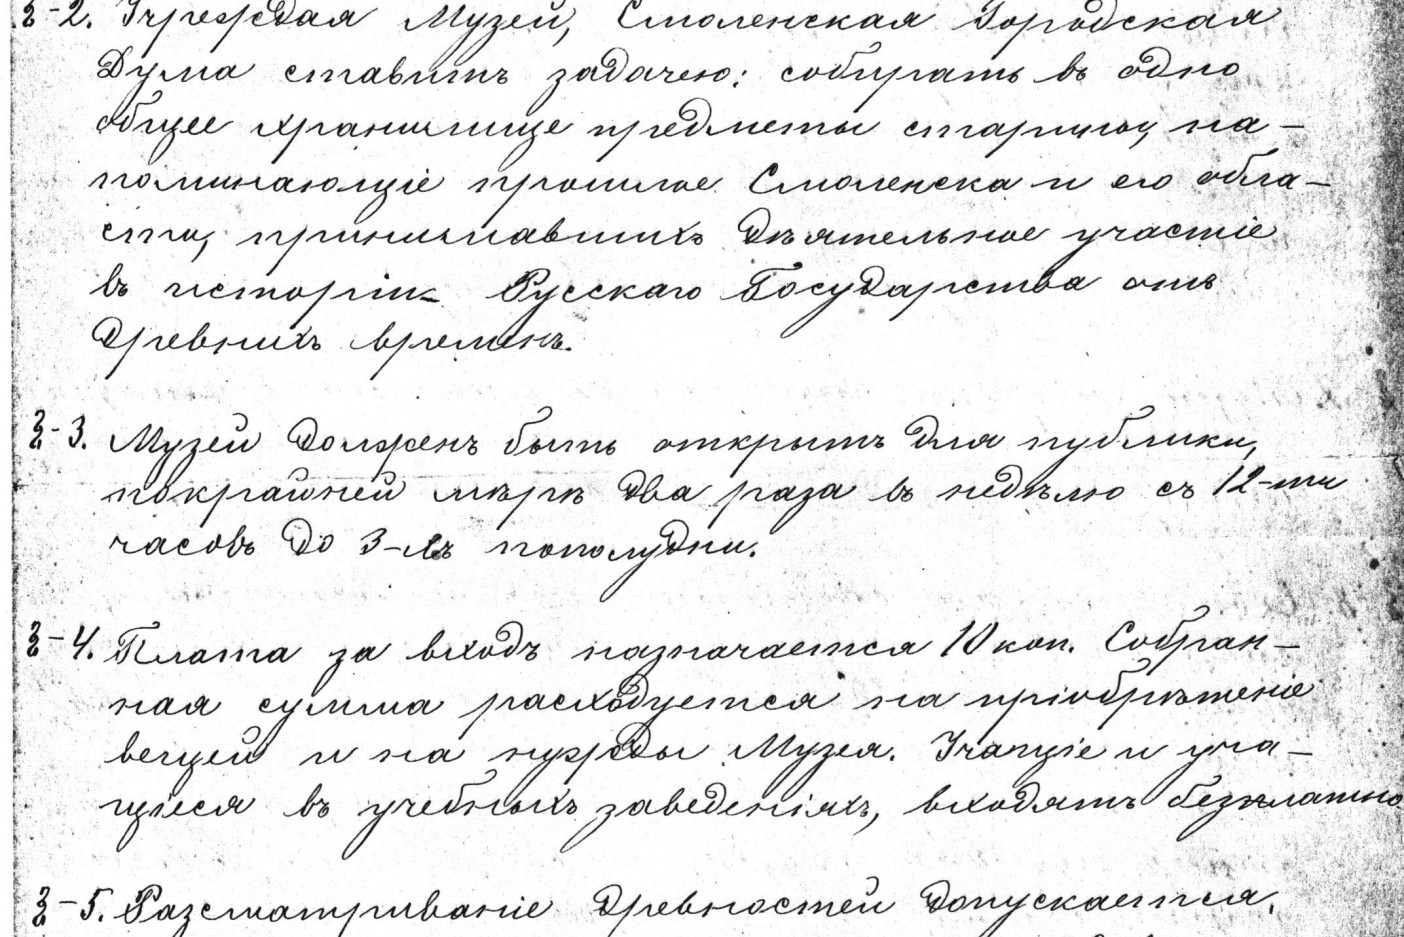 §-2. Учреждая Музей, Смоленская Городская
Дума ставитъ задачею: собирать въ одно
общее хранилище предметы старины, на-
поминающіе прошлое Смоленска и его обла-
сти, принимавшихъ дѣятельное участіе
въ исторіи Русскаго Государства отъ
древнихъ временъ.
§-3. Музей долженъ быть открытъ для публики,
покрайней мѣрѣ два раза въ недѣлю съ 12-ти
часовъ до 3-хъ пополудни.
§-4. Плата за входъ назначается 10 коп. Собран-
ная сумма расходуется на пріобрѣтеніе
вещей и на нужды Музея. Учащіе и уча-
щіеся въ учебныхъ заведеніяхъ, входятъ безплатно
§-5. Разсматриваніе древностей допускается.